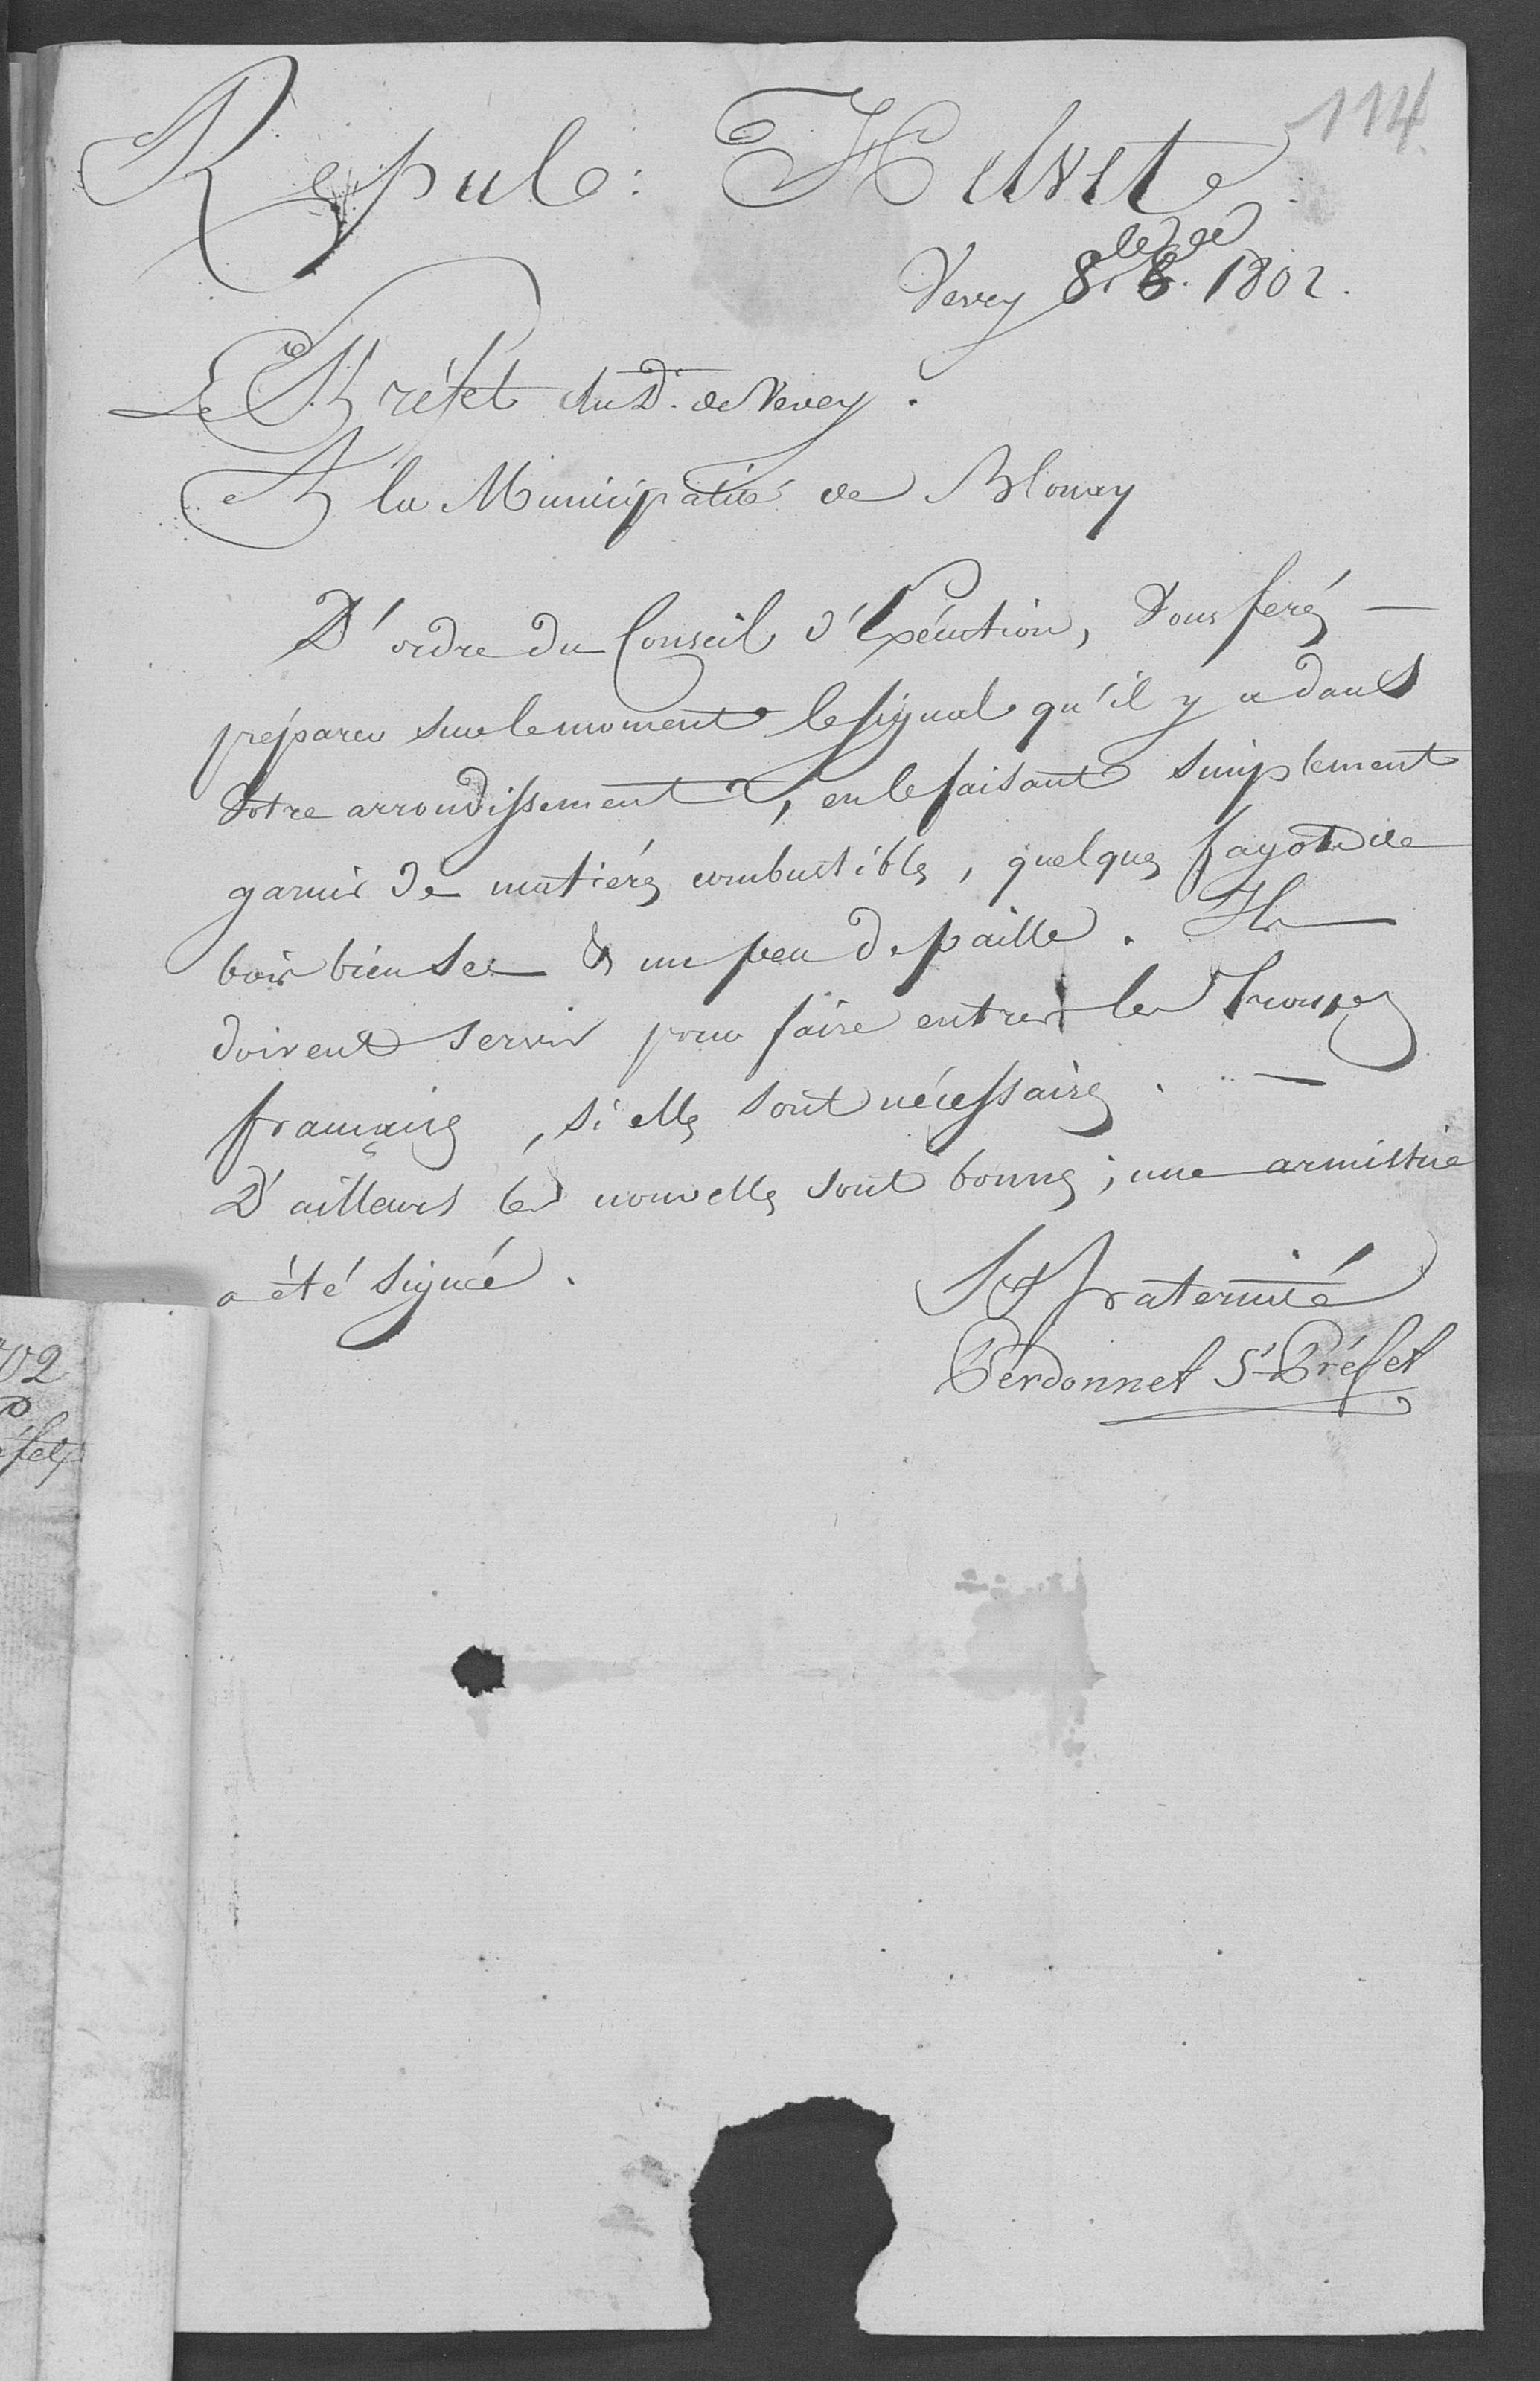 114
Repub: Helvet:
Vevey 8. 8.bre 1802.
Le Préfet du D. de Vevey.
A la Municipalité de Blonay
D'ordre du Conseil d'Exécution, Vous ferés
préparer sur le moment le signal qu'il y a dans
Votre arrondissement, en le faisant simplement
garnir de matières combustibles, quelques fagots de
bois bien sec & un peu de paille. Ils
doivent servir pour faire entrer les Troupes
françaises, si elles sont nécessaires.
D'ailleurs les nouvelles sont bonnes; une armistice
a été signée.
S & fraternité
Perdonnet S' Préfet